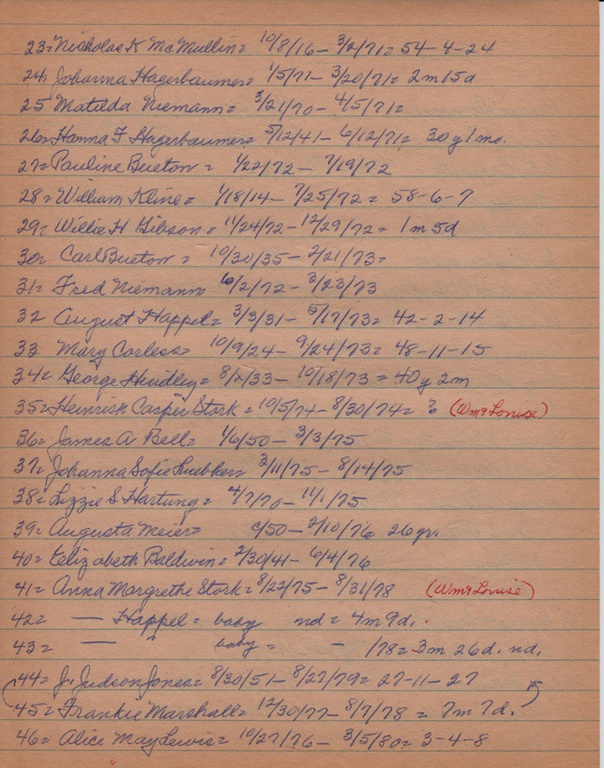 23= Nicholas K McMullin= 10/8/16 - 3/2/71= 54-4-24
24, Johanna Hagerbaumer= 1/5/71 - 3/20/71= 2m 15d
25 Matilda Niemann= 3/21/70 - 4/5/71=
26= Hanna F Hagerbaumer= 5/12/41 - 6/12/71= 30y 1mo.
27= Pauline Bueton = 1/22/72 - 7/19/72
28= William Kline= 1/18/14 - 7/25/72= 58-6-7
29= Willie H Gibson= 11/24/72 - 12/29/72= 1m 5d
30= Carl Bueton = 10/30/35 - 2/21/73=
31= Fred Niemann 6/2/72 - 3/23/73
32 August Happel= 3/3/31 - 5/17/73= 42-2-14
33 Mary Corless= 10/9/24 - 9/24/73= 48-11-15
34= George Hindley= 8/2/33 - 10/18/73 = 40y 2m
35= Heinrich Casper Stork= 10/5/74 - 8/30/74= ? (Wm & Louise)
36= James A Bell= 1/6/50 - 3/3/75
37= Johanna Sofie Luebker= 3/11/75 - 8/14/75
38= Lizzie S Hartung= 4/7/70 - 11/1/75
39= Augusta Meier= c/50 - 2/10/76 26yr.
40= Elizabeth Baldwin= 2/30/41 - 6/4/76
41= Anna Margrethe Stork= 8/22/75 - 8/31/78 (Wm & Louise)
42= — Happel= baby nd= 4m 9d.
43= — " baby= - /78= 3m 26d. nd.
44= J. Judson Jones= 8/30/51 - 8/27/79= 27-11-27
45= Frankie Marshall= 12/30/77 - 8/7/78 = 7m 7d.
46= Alice May Lewis= 10/27/76 - 3/5/80= 3-4-8